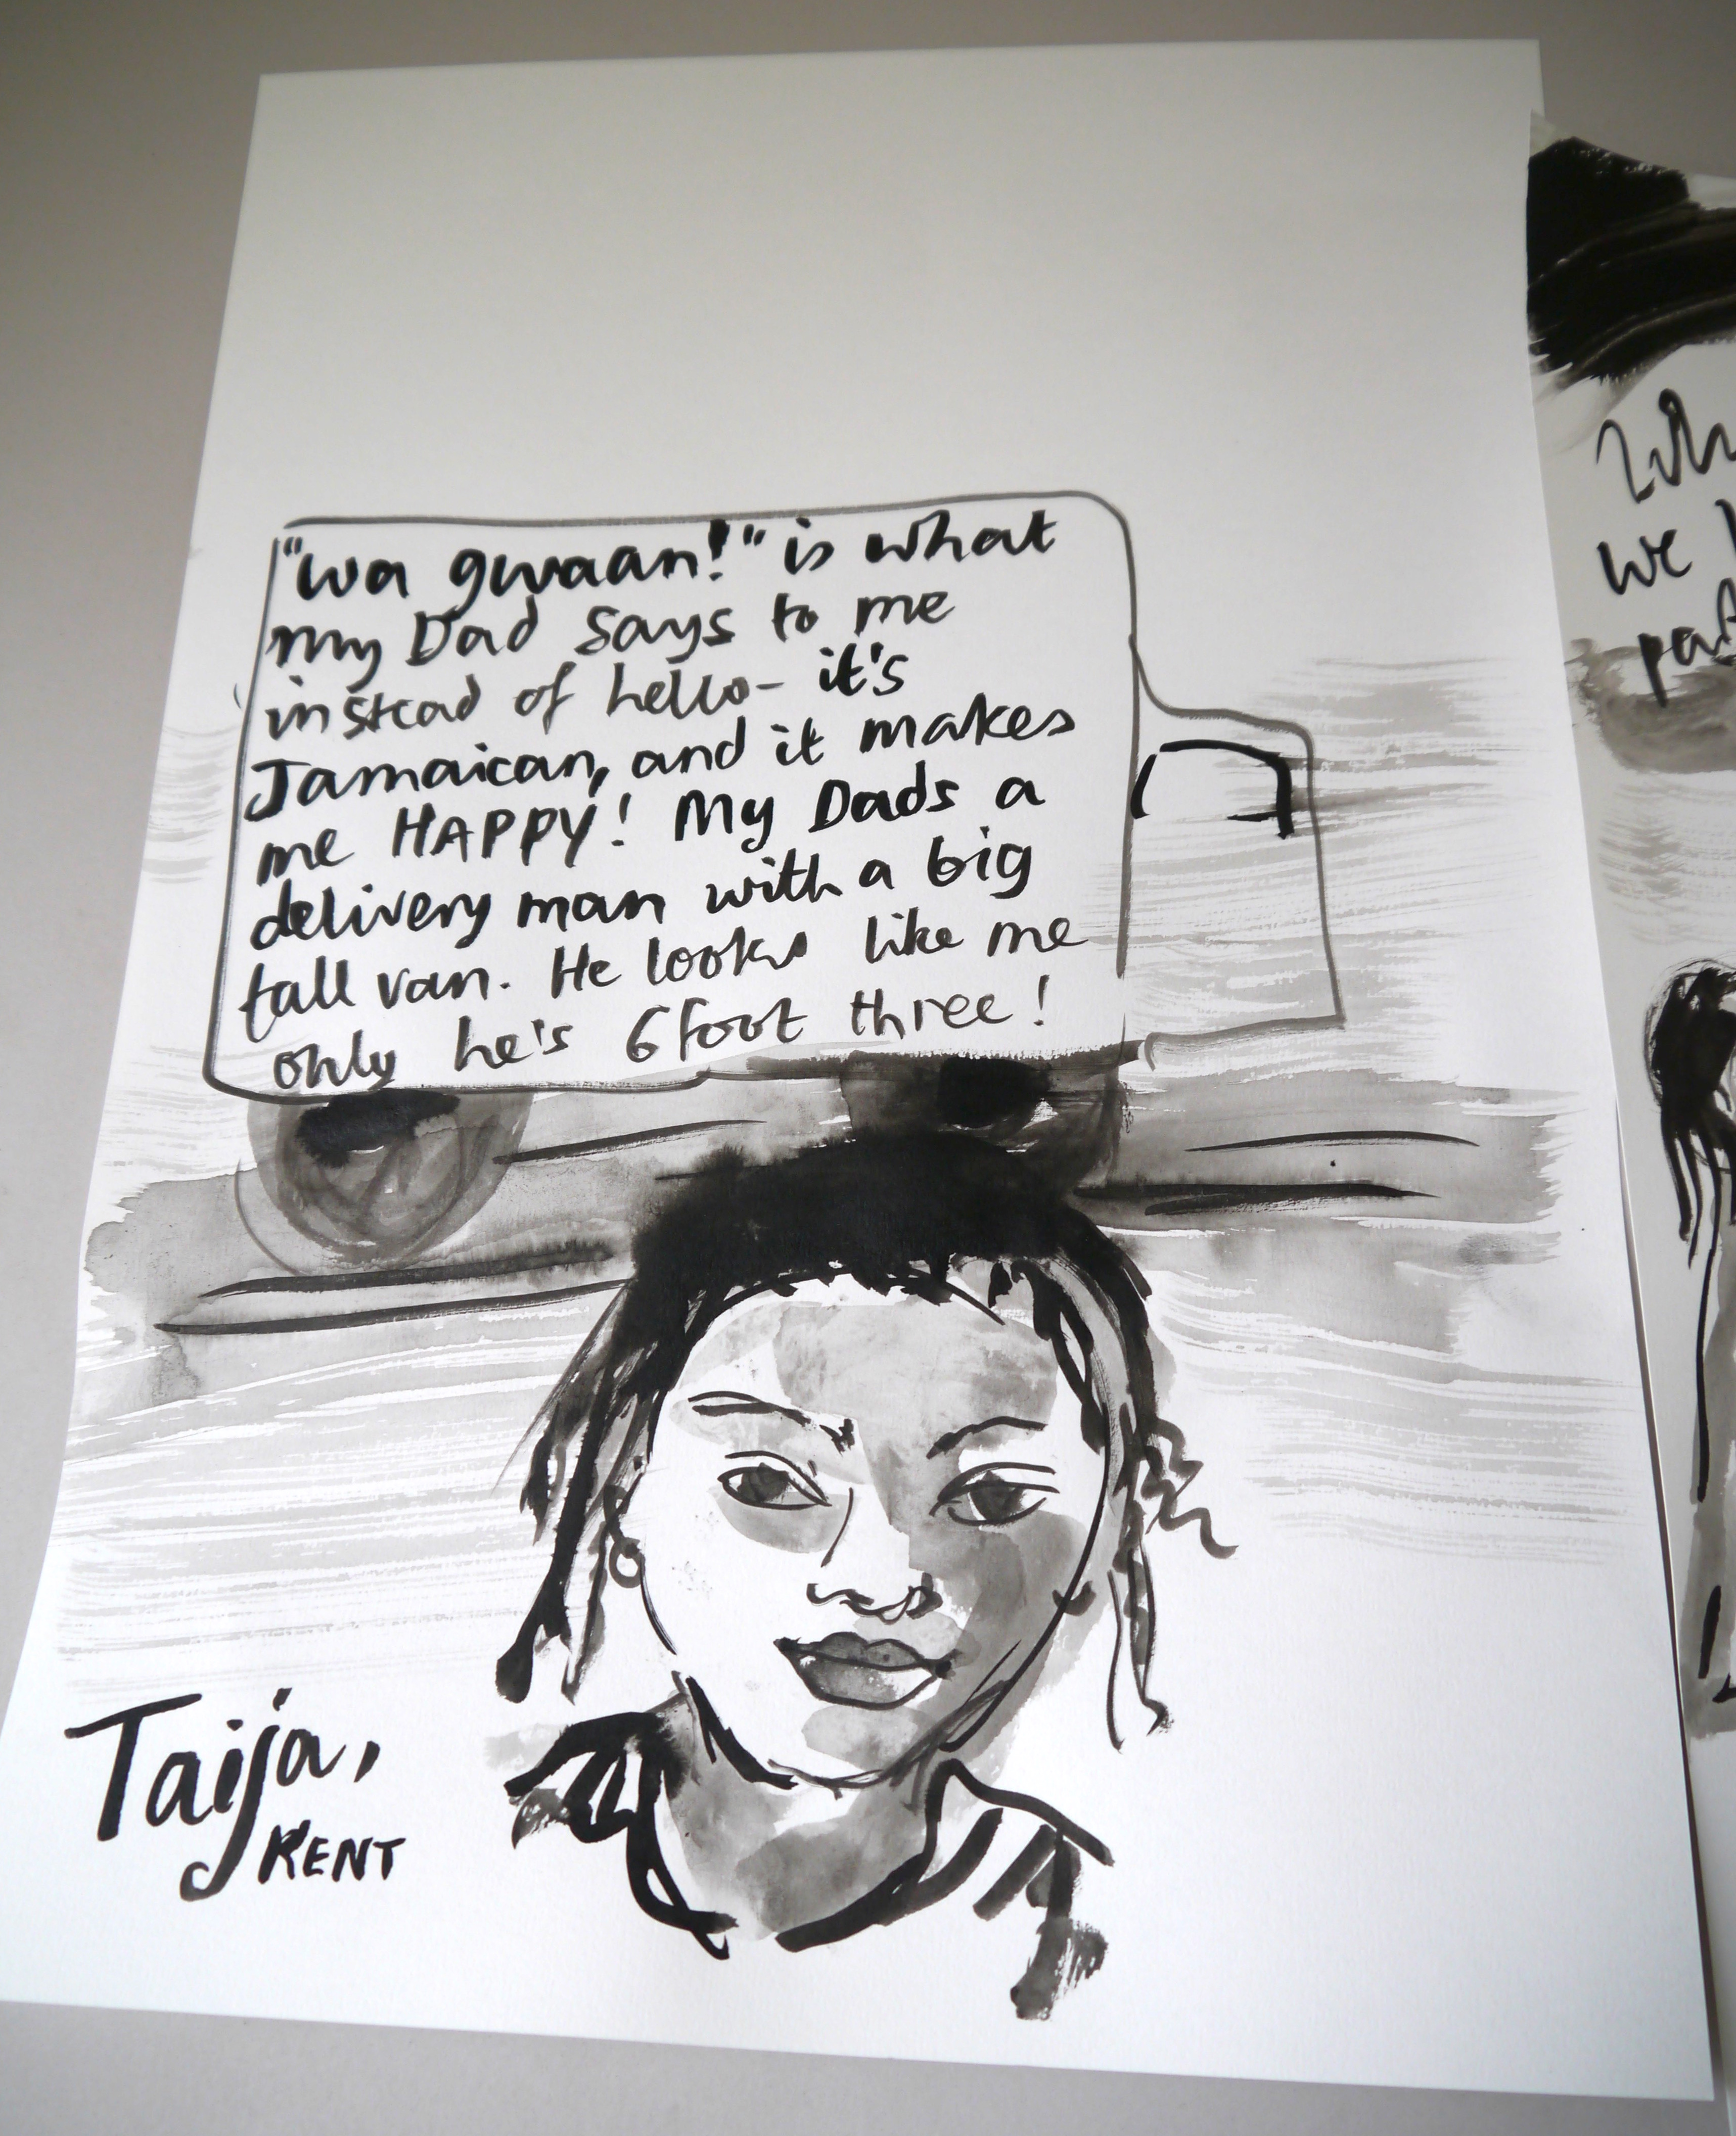 "wa gwaan!" is what
my Dad says to me
instead of hello- it's
Jamaican, and it makes
me HAPPY! My Dads a
delivery man with a big
tall van. He looks like me
only he's 6foot three!
Taija,
KENT
we